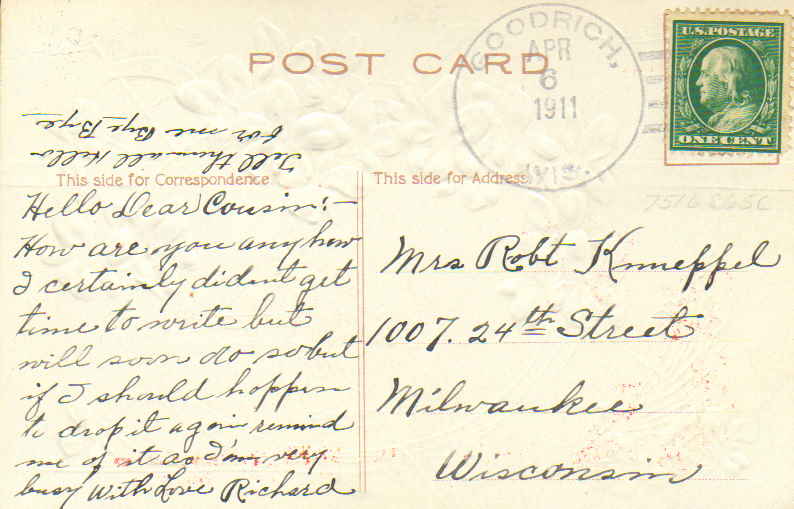 POST CARD
GOODRICH,
APR
6
1911
WIS.
U.S. POSTAGE
ONE CENT
Tell them all Hello
for me Bye Bye
This side for Correspondence
Hello Dear Cousin:-
How are you any how
I certainly dident get
time to write but
will soon do so but
if I should hoppen
to drop it again remind
me of it as I'm very
busy With Love Richard
This side for Address
Mrs Robt Knueppel
1007. 24th Street
Milwaukee
Wisconsin